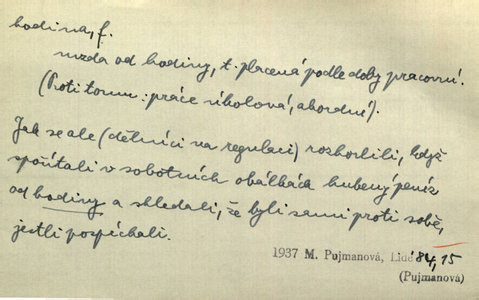 hodina, f.
mzda od hodiny, t. placená podle doby pracovní.
(Proti tomu: práce úkolová, akordní).
Jak se ale (dělníci na regulaci) rozhorlili, když
spočítali v sobotních obálkách hubený peníz
od hodiny a shledali, že byli sami proti sobě,
jestli pospíchali.
1937 M. Pujmanová, Lidé 84,15
(Pujmanová)